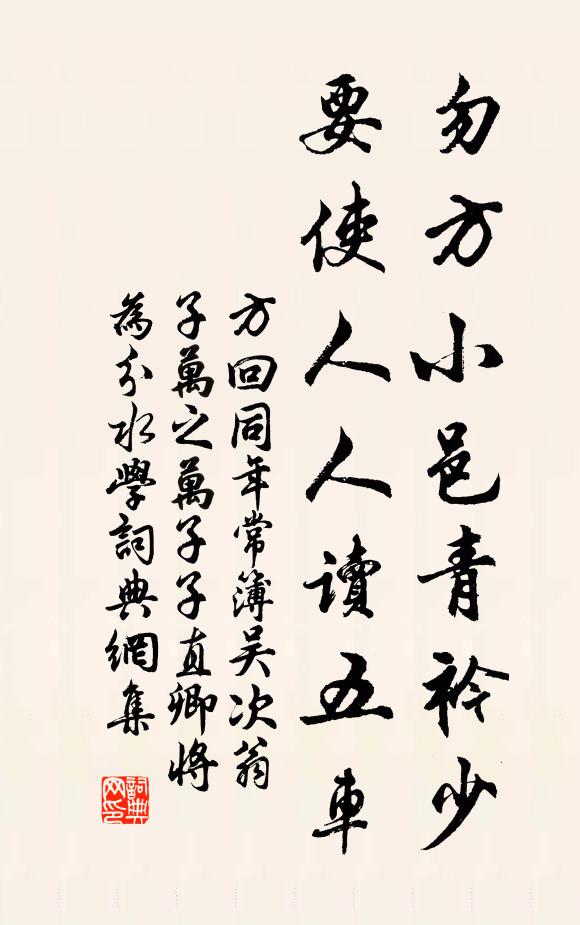 勿方小邑青衿少
要使人人讀五車
方回同年常簿吴次翁
子萬之萬子子直卿將
為分水學詞典網集
詞典網印